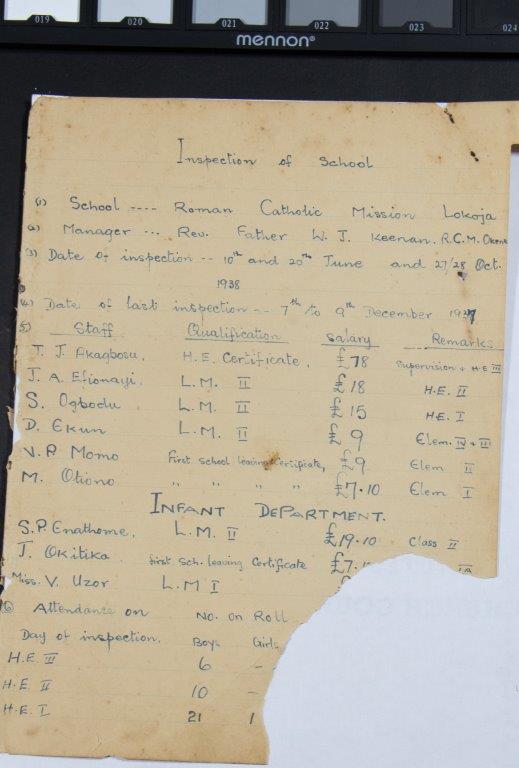 019 020 021 022 023 024
mennon
Inspection of School
(1) School ---- Roman Catholic Mission Lokoja
(2) Manager ... Rev. Father W. J. Keenan. R.C.M. Okene
(3) Date of inspection -- 10th and 20th June and 27/28 Oct.
1938
(4) Date of last inspection -- 7th to 9th December 1937
5) Staff Qualification Salary Remarks
T. J. Akagbosu. H.E. Certificate. £78 Supervision + H.E III
J. A. Efionayi. L.M. II £18 H.E. II
S. Ogbodu L.M. II £15 H.E. I
D. Ekun L.M. II £9 Elem. IV + III
V. P. Momo First school leaving Certificate, £9 Elem II
M. Otiono " " " " £7.10 Elem I
INFANT DEPARTMENT.
S.P. Enathome, L.M. II £19.10 Class II
J. Okitika. first Sch. leaving Certificate £7.
Miss. V. Uzor L.M I £
(6) Attendance on No. on Roll
Day of inspection. Boys Girls
H.E. III 6 -
H.E. II 10 -
H.E. I 21 1